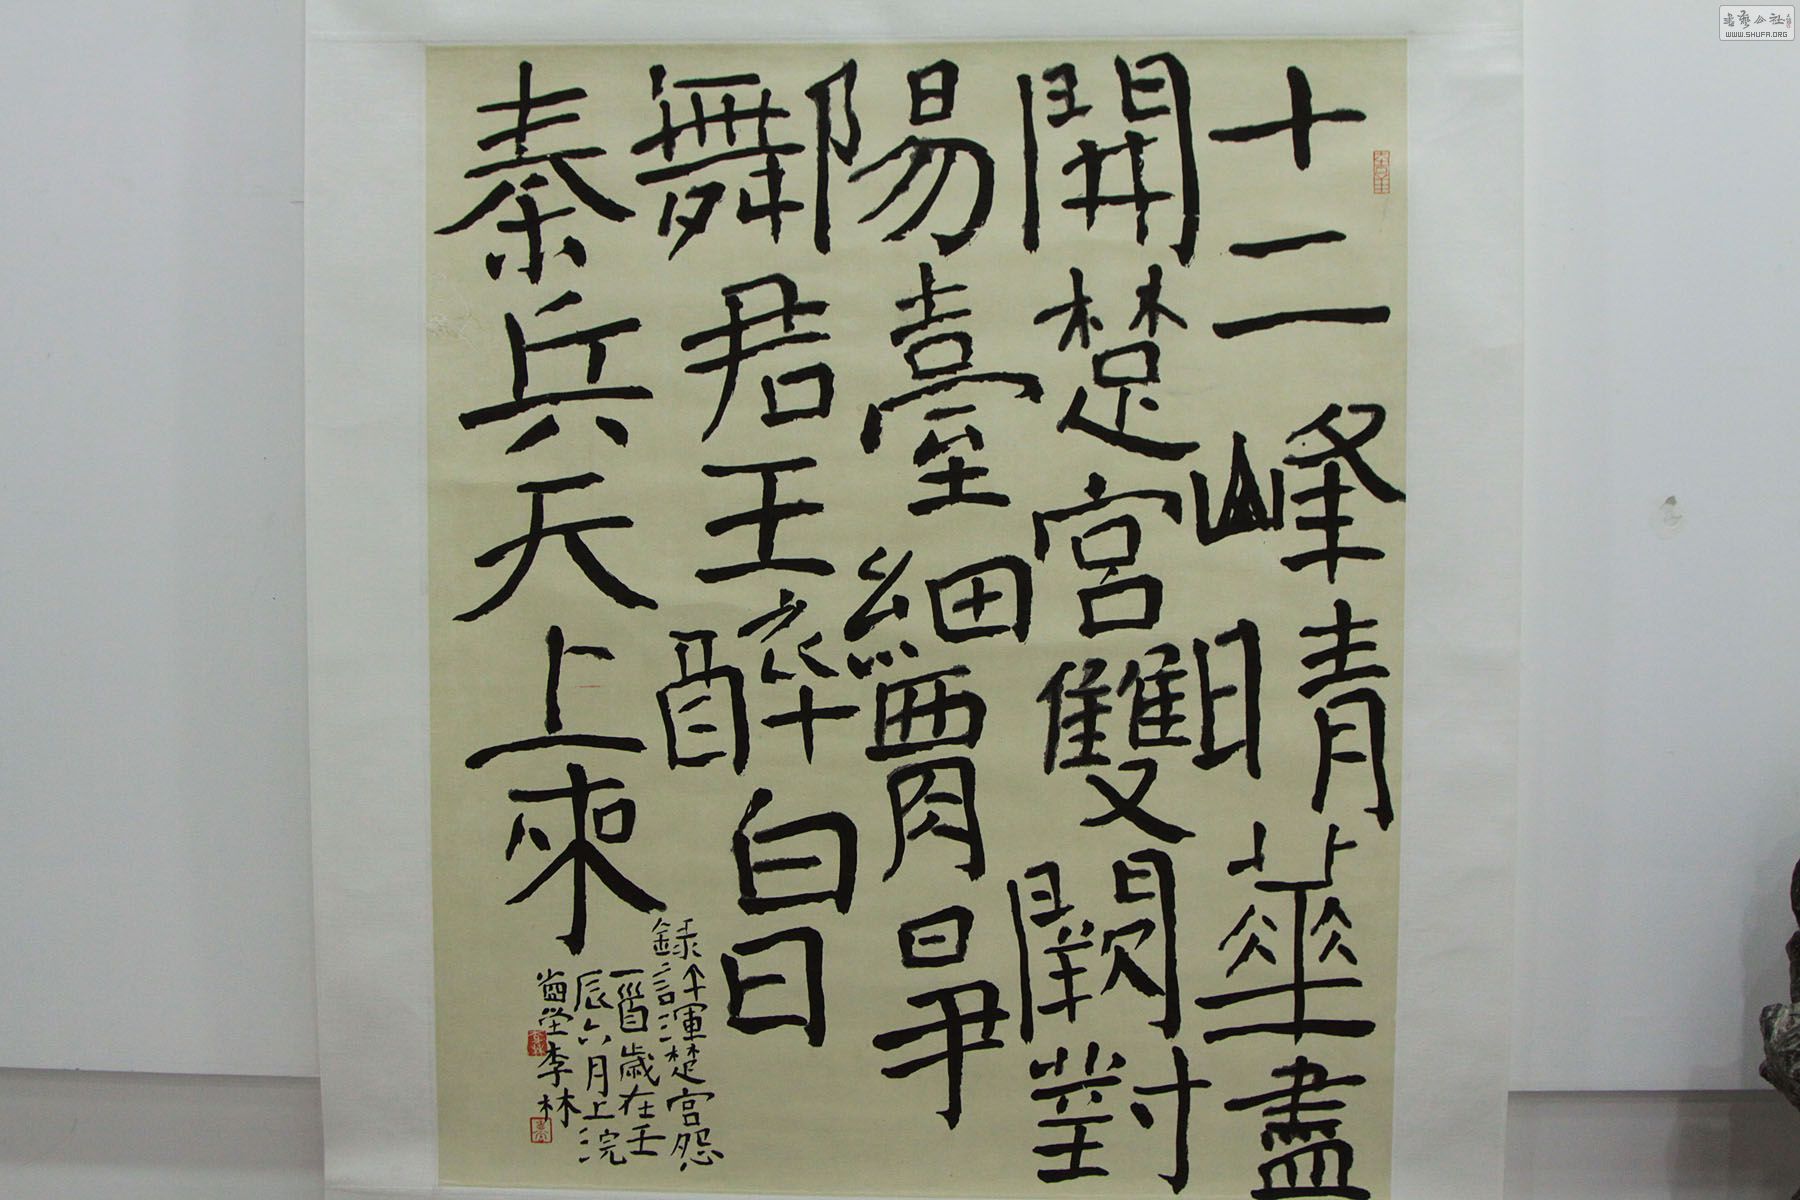 十二峰晴華盡
開楚宮雙闕對
陽臺細腰爭
舞君王醉白日
秦兵天上來
錄許渾楚宮怨
一首歲在壬
辰六月上浣
堂李林
书艺公社
WWW.SHUFA.ORG